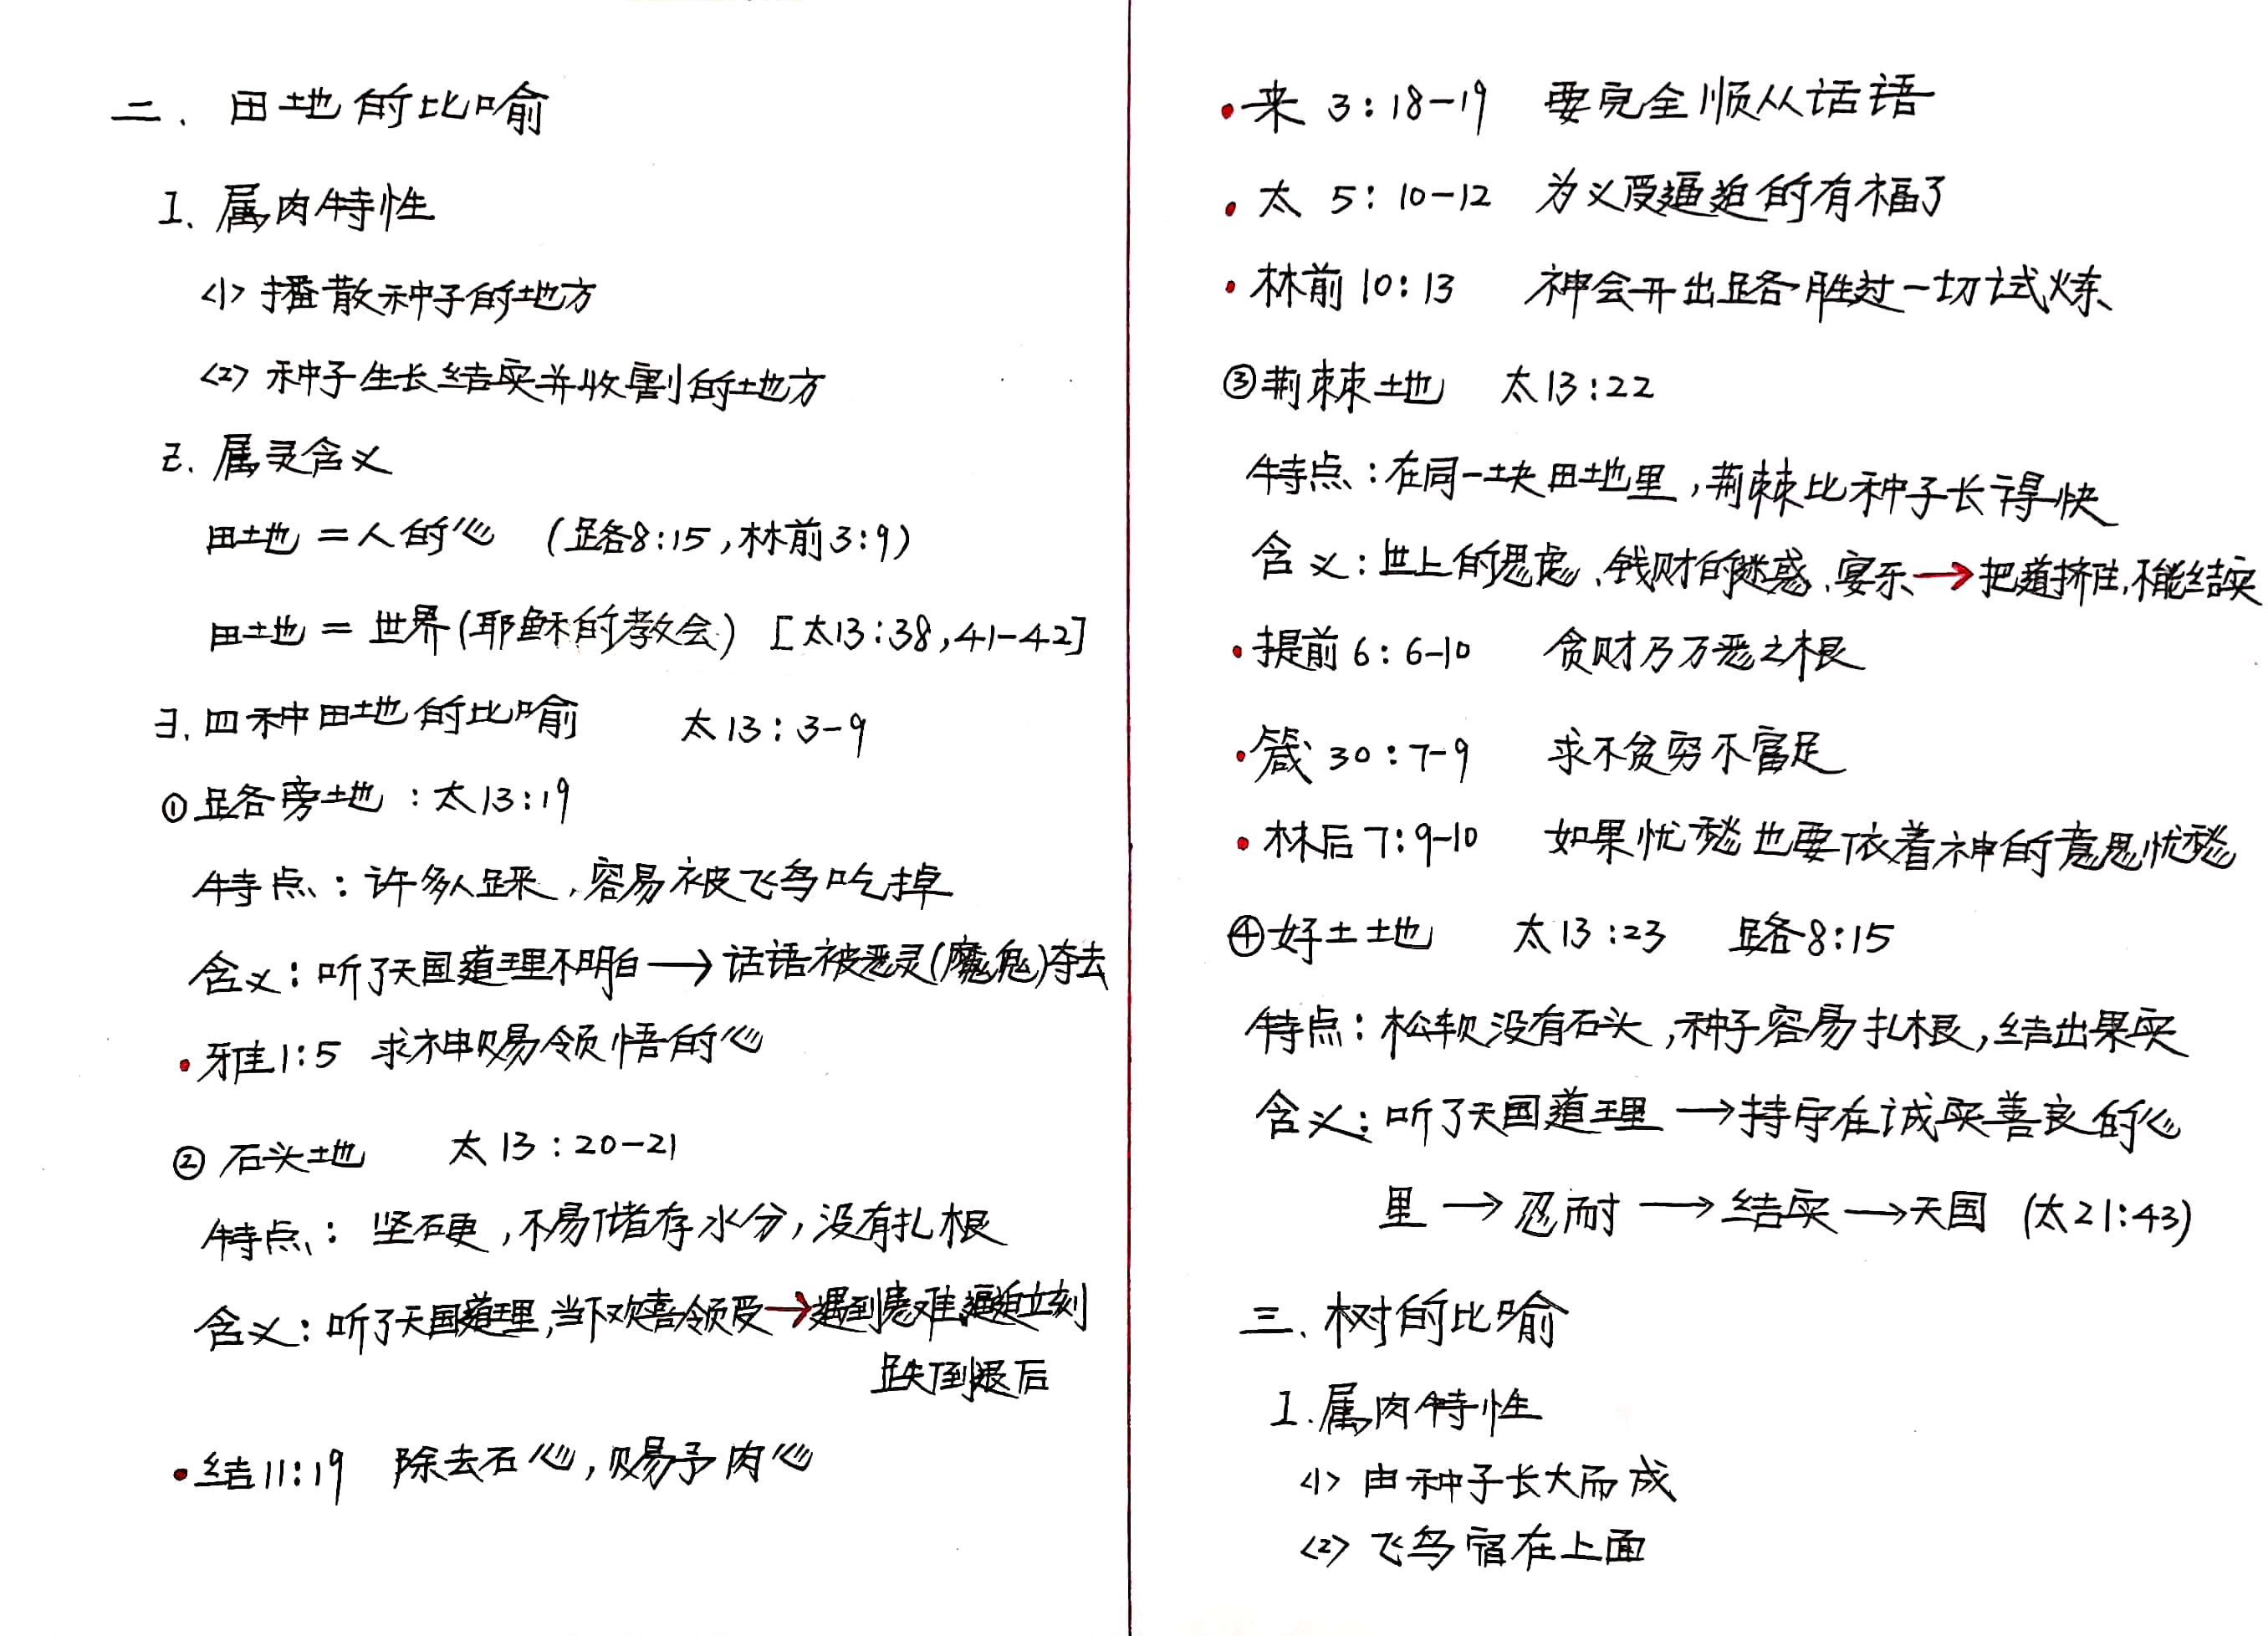 二、田地的比喻
1、属肉特性
<1> 播散种子的地方
<2> 种子生长结实并收割的地方
2、属灵含义
田地 = 人的心 (路8:15,林前3:9)
田地 = 世界(耶稣的教会) [太13:38,41-42]
3、四种田地的比喻 太13:3-9
①路旁土地:太13:19
特点:许多人踩,容易被飞鸟吃掉
含义:听了天国道理不明白→话语被恶灵(魔鬼)夺去
•雅1:5 求神赐领悟的心
② 石头土地 太13:20-21
特点:坚硬,不易储存水分,没有扎根
含义:听了天国道理,当下欢喜领受→遇到患难逼迫立刻
跌倒退后
•结11:19 除去石心,赐予肉心
•来 3:18-19 要完全顺从话语
•太 5:10-12 为义受逼迫的有福了
•林前10:13 神会开出路胜过一切试炼
③荆棘土地 太13:22
特点:在同一块田地里,荆棘比种子长得快
含义:世上的思虑、钱财的迷惑、宴乐→把道挤住,不能结实
•提前6:6-10 贪财乃万恶之根
•箴30:7-9 求不贫穷不富足
•林后7:9-10 如果忧愁也要依着神的意思忧愁
④好土土地 太13:23 路8:15
特点:松软没有石头,种子容易扎根,结出果实
含义:听了天国道理→持守在诚实善良的心
里→忍耐→结实→天国 (太21:43)
三、树的比喻
1、属肉特性
<1> 由种子长大而成
<2> 飞鸟宿在上面